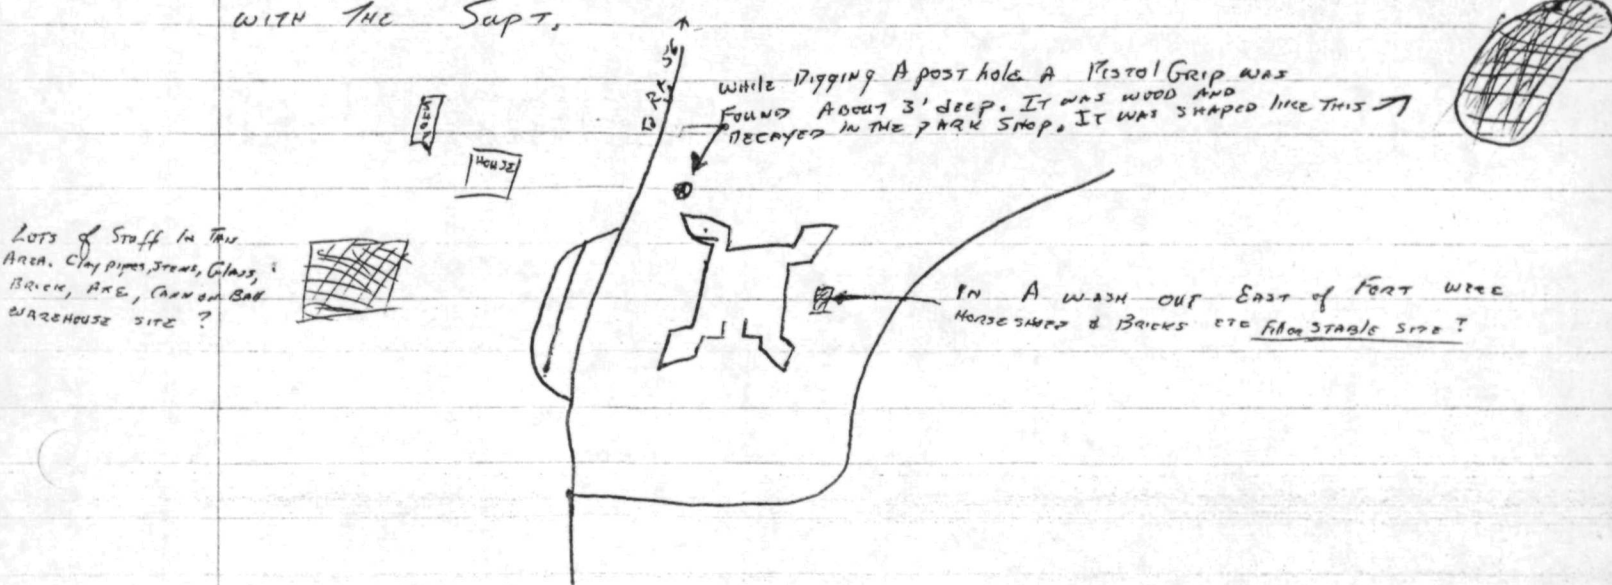 WITH THE SUPT.
WHILE DIGGING A POST HOLE A PISTOL GRIP WAS
FOUND ABOUT 3' DEEP. IT WAS WOOD AND
DECAYED IN THE PARK SHOP. IT WAS SHAPED LIKE THIS
HOUSE
LOTS of STUFF IN THIS
AREA. CLAY PIPES, STEMS, GLASS,
BRICK, AXE, CANNON BALL
WAREHOUSE SITE?
IN A WASH OUT EAST of FORT WERE
HORSE SHOES & BRICKS ETC STABLE SITE?